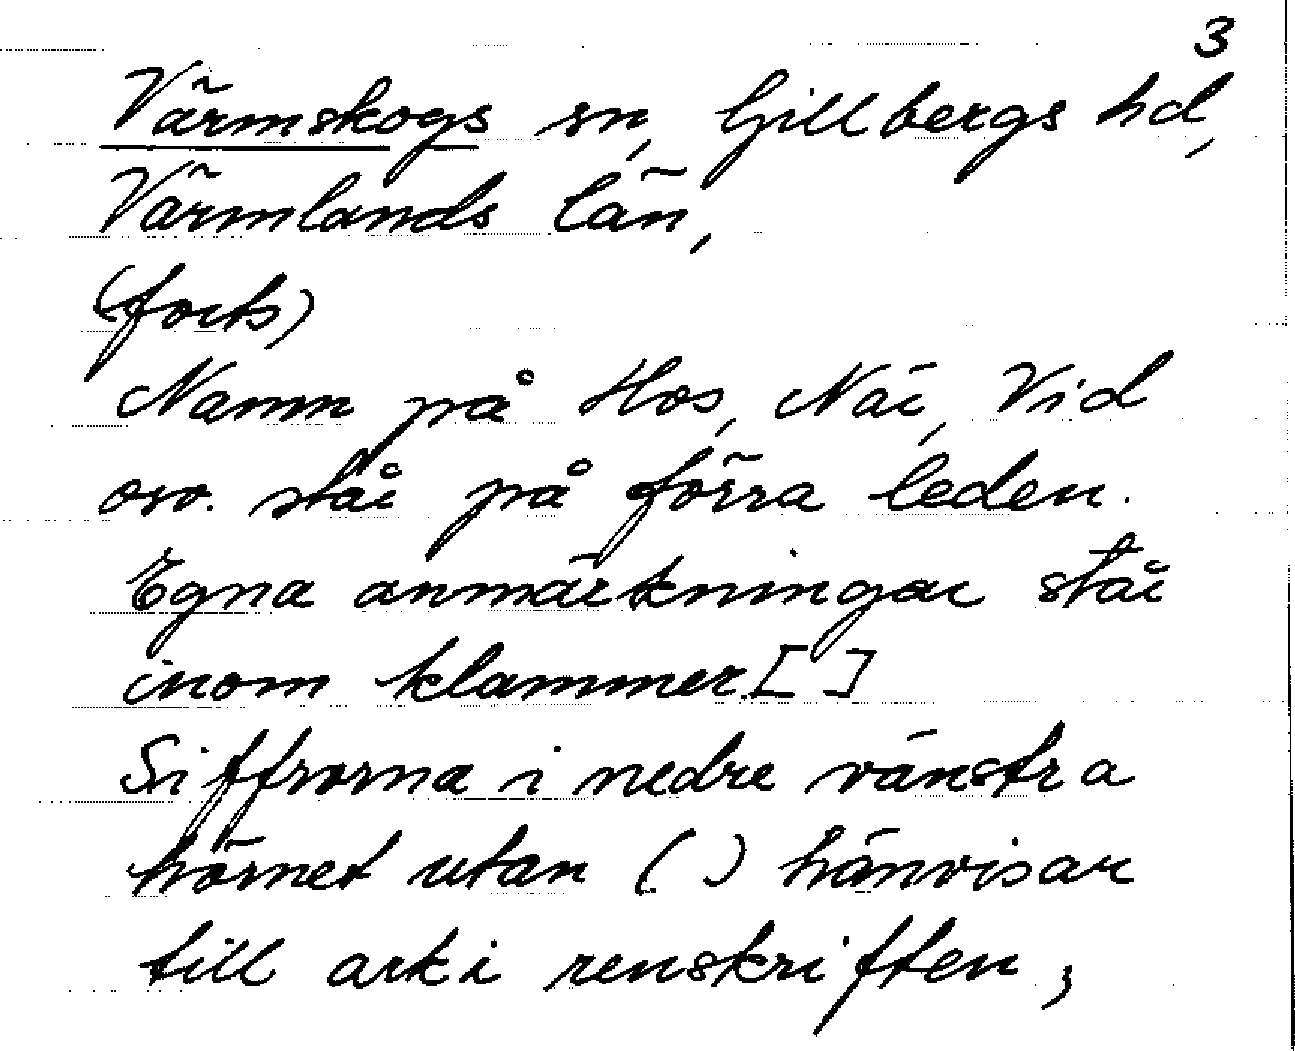 3
Värmskogs sn, Gillbergs hd,
Värmlands län,
(forts)
Namn på Hos, När, Vid
oso. står på förra leden.
Egna anmärkningar står
inom klammer [ ]
Siffrorna i nedre vänstra
hörnet utan ( ) hänvisar
till ark i renskriften,